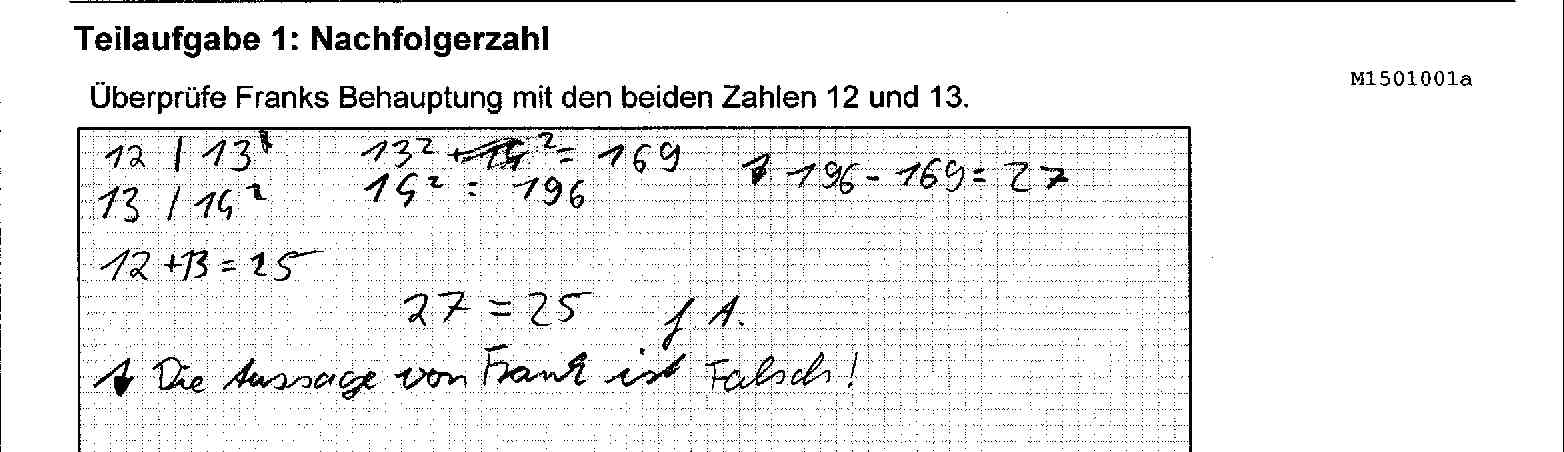 Teilaufgabe 1: Nachfolgerzahl
M1501001a
Überprüfe Franks Behauptung mit den beiden Zahlen 12 und 13.
12 | 13 13² = 169 196 - 169 = 27
13 / 14² 14² = 196
12 + 13 = 25
27 = 25 f A.
Die Aussage von Frank ist Falsch!